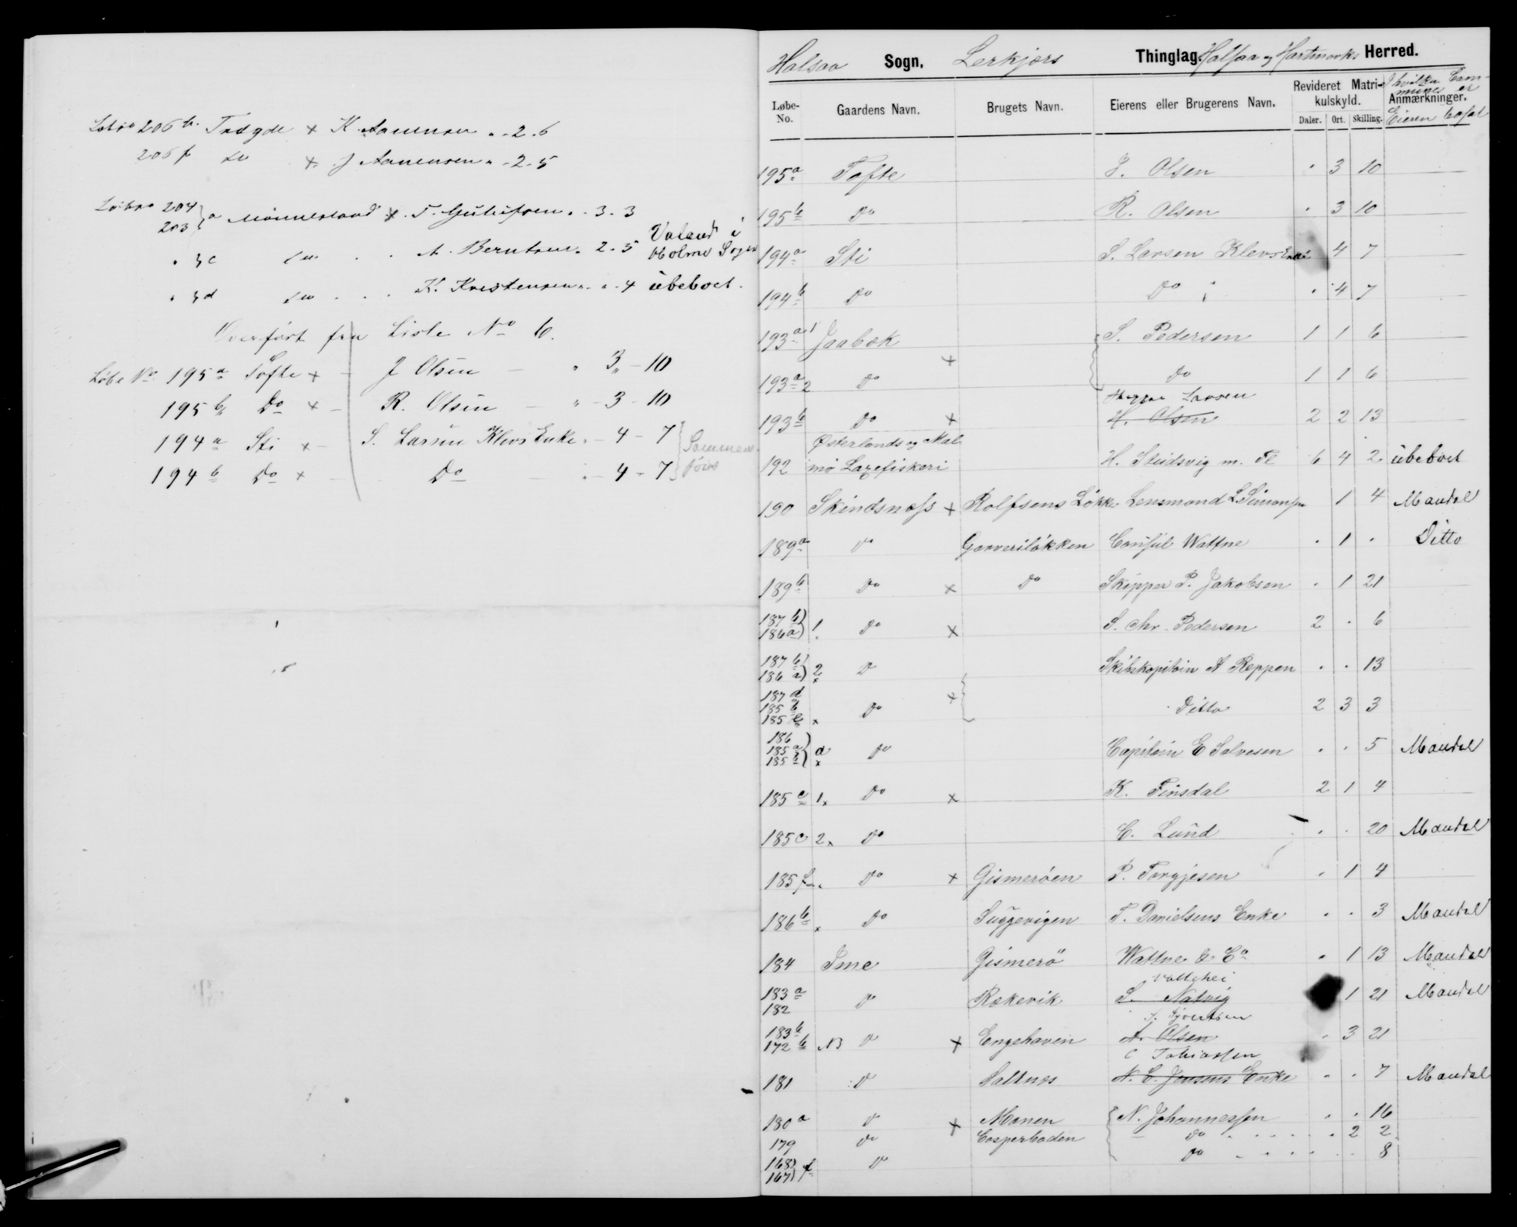 Løbno 206 b. Tregde x K Aanensen " - 2 - 6
206 f do x J Aanensen " - 2 - 5
Løbno 204
203 } a Mønnesland x T. Gulufsen " - 3 - 3
" } c do . . A. Berntsen " 2 - 5 Valand i Holme Sogn
" } d do . . . K. Kristensen " - " - 4 ubeboet.
Overført fra Liste No 6.
Løbe No 195 a Tofte x - J Olsen - " 3 - 10
195 b Do x - R. Olsen - " - 3 - 10
194 a Sti x - S. Larsen Klevs Enke " - 4 - 7
194 b Do x - Do - " - 4 - 7
Halsaa Sogn, Lerkjærs Thinglag Halsaa og Hartmarks Herred.
Løbe-No. Gaardens Navn. Brugets Navn. Eierens eller Brugerens Navn. Revideret Matrikulskyld. Daler. Ort. Skilling. Anmærkninger.
195 a Tofte J. Olsen " 3 10
195 b Do R. Olsen " 3 10
194 a Sti S. Larsen Klevs Enke 4 7
194 b Do Do " 4 7
193 a 1 Jaabæk S. Pedersen 1 1 6
193 a 2 Do x Do 1 1 6
Larsen
193 b Do x H. Olsen 2 2 13
192 Østerlands og Mal
mø Laxefiskeri H. Stusvig m. fl 6 4 2 ubeboet
190 Skindsnæss x Rolfsens Løkke Lensmand L Simonsen 1 4 Mandal
189 a Do Garveriløkken Consul Wattne " 1 " Ditto
189 b Do x Do Skipper P. Jakobsen " 1 21
187 b
186 a } 1. Do x S. Chr. Pedersen 2 " 6
187 b
186 a } 2 x D Skibskaptein A Reppen " " 13
187 d
185 b
185 x Do x Ditto 2 3 3
186
185 a
185 } a x Do Captein E Salvesen " " 5 Mandal
185 c 1 x Do x K. Tinsdal 2 1 4
185 c 2 x Do C. Lund " " 20 Mandal
185 f. Do x Gismerøen P. Torgjesen " 1 4
186 b x Do Suggevigen T. Danielsens Enke " " 3 Mandal
184 Ime Gismerø Wattne & Co " 1 13 Mandal
183 a
182 Do Rækevik S. Natvig 1 21 Mandal
183 b
172 b N3 Do x Engehaven A. Olsen " 3 21
C Tobiassen
181 Do Saltnes N. C. Jensens Enke " " 7 Mandal
180 a Do x Monen N. Johannessen " " 16
179 Do Casperboden Do " 2 2
168
167 } f Do Do " " 8